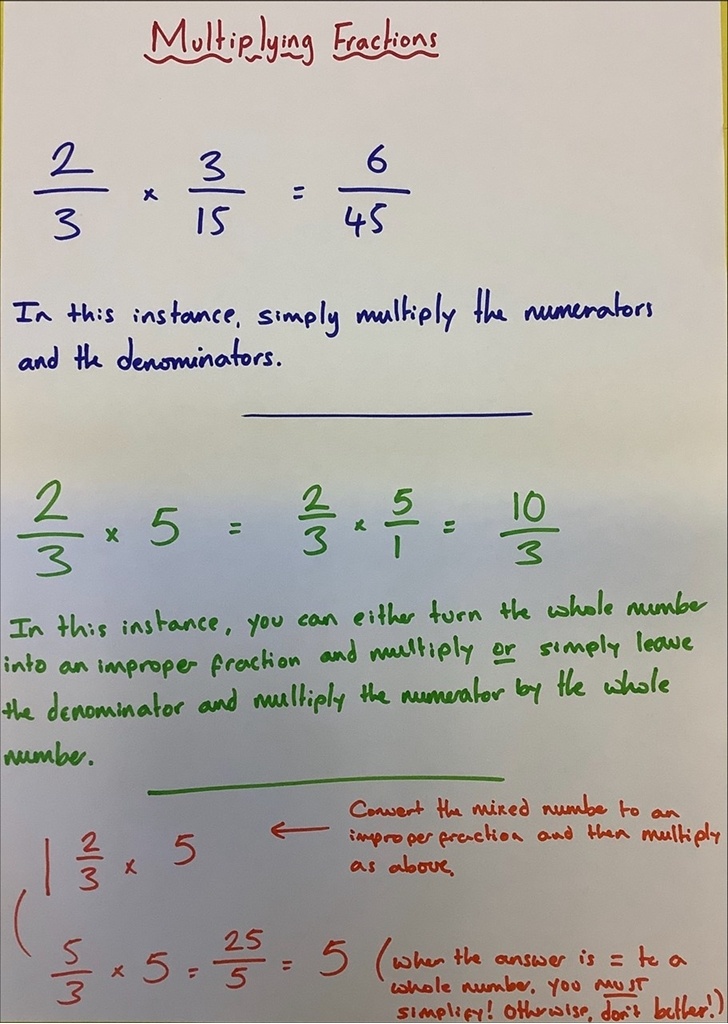 Multiplying Fractions
2/3 × 3/15 = 6/45
In this instance, simply multiply the numerators
and the denominators.
2/3 × 5 = 2/3 × 5/1 = 10/3
In this instance, you can either turn the whole number
into an improper fraction and multiply or simply leave
the denominator and multiply the numerator by the whole
number.
1 2/3 × 5 ←
Convert the mixed numbe to an
improper fraction and then multiply
as above.
5/3 × 5 = 25/5 = 5 (when the answer is = to a
whole number, you must
simplify! Otherwise, don't bother!)